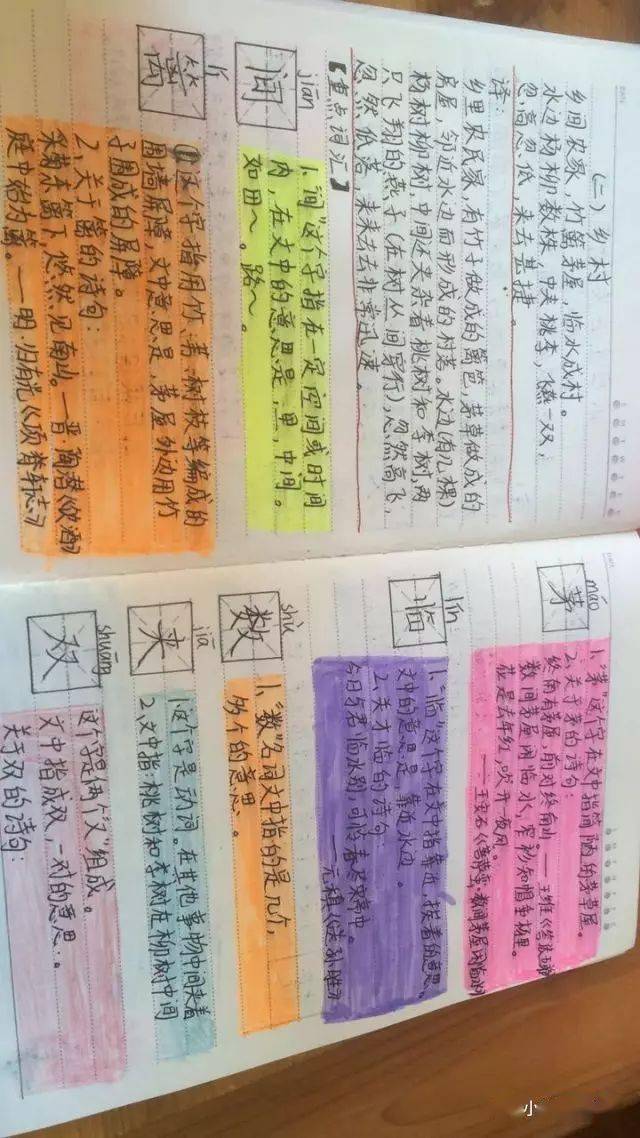 (二)乡村
乡间农家，竹篱茅屋，临水成村。
水边杨柳数株，中夹桃李，飞燕一双，
忽高忽低，来去甚捷。
译：
乡里农民家，有竹子做成的篱笆，茅草做成的
房屋，邻近水边而形成的村落。水边（有几棵）
杨树柳树，中间还夹杂着桃树和李树，两
只飞翔的燕子（在树丛间穿行），忽然高飞，
忽然低落，来来去去非常迅速。
【重点词汇】
jiān
间
1、"间"这个字指在一定空间或时间
内，在文中的意思是，里，中间。
如田～。路～。
lí
篱
①这个字指用竹、苇、树枝等编成的
围墙屏障，文中意思是，茅屋外边用竹
子围成的屏障。
2、关于篱的诗句：
采菊东篱下，悠然见南山。—晋·陶潜《饮酒》
庭中始为篱。—明·归有光《项脊轩志》
máo
茅
1、"茅"这个字在文中指简陋的茅草屋。
2、关于茅的诗句：
终南有茅屋，前对终南山——王维
数间茅屋闲临水，窄衫短帽垂杨里。
花是去年红，吹开一夜风。
——王安石《菩萨蛮·数间茅屋闲临水》
lín
临
1、"临"这个字在文中指靠近，挨着的意思。
文中的意思是，靠近水边。
2、关于临的诗句：
今日与君临水别，可怜春尽宋亭中。
——元稹
shù
数
1、"数"名词文中指的是几个，
多个的意思。
jiā
夹
1、这个字是动词。在其他事物中间夹着
2、文中指：桃树和李树在柳树中间
shuāng
双
这个字是俩个"又"组成。
文中指成双，一对的意思。
关于双的诗句：
小